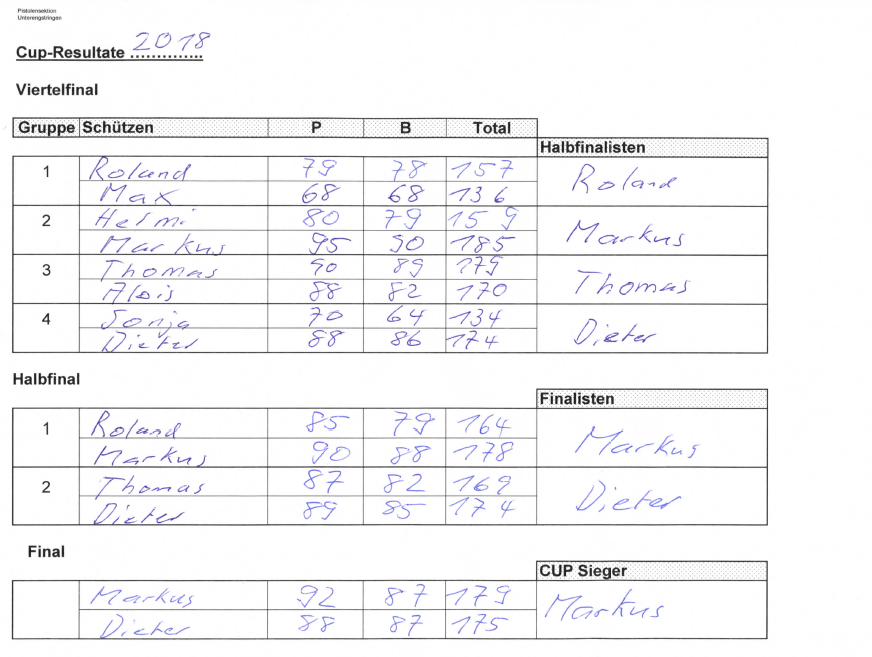 Pistolensektion
Unterengstringen
Cup-Resultate 2018
Viertelfinal
Gruppe Schützen P B Total
Halbfinalisten
1 Roland 79 78 157 Roland
Max 68 68 136
2 Helmi 80 79 159 Markus
Markus 95 90 185
3 Thomas 90 89 179 Thomas
Alois 88 82 170
4 Sonja 70 64 134 Dieter
Dieter 88 86 174
Halbfinal
Finalisten
1 Roland 85 79 164 Markus
Markus 90 88 178
2 Thomas 87 82 169 Dieter
Dieter 89 85 174
Final
CUP Sieger
Markus 92 87 179 Markus
Dieter 88 87 175